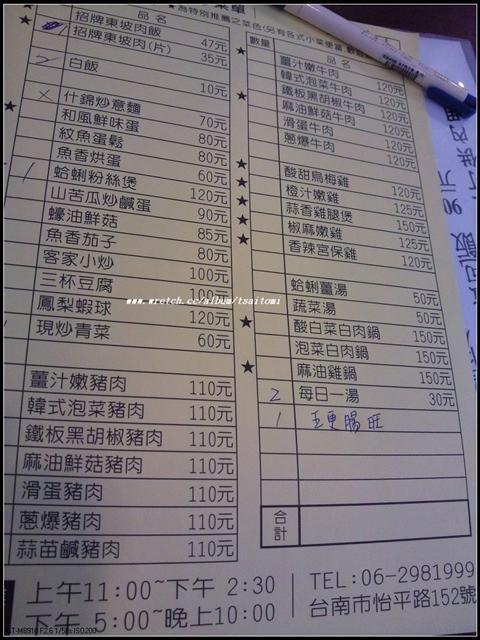 菜單
★為特別推薦之菜色(另有各式小菜便當,歡
品名
招牌東坡肉飯 47元
招牌東坡肉(片) 35元
2 白飯 10元
什錦炒意麵 70元
和風鮮味蛋 80元
紋魚蛋鬆 80元
魚香烘蛋 60元
1 蛤蜊粉絲煲 120元
山苦瓜炒鹹蛋 90元
蠔油鮮菇 85元
魚香茄子 80元
客家小炒 100元
三杯豆腐 100元
鳳梨蝦球 120元
現炒青菜 60元
薑汁嫩豬肉 110元
韓式泡菜豬肉 110元
鐵板黑胡椒豬肉 110元
麻油鮮菇豬肉 110元
滑蛋豬肉 110元
蔥爆豬肉 110元
蒜苗鹹豬肉 110元
數量 品名
薑汁嫩牛肉 120元
韓式泡菜牛肉 120元
鐵板黑胡椒牛肉 120元
麻油鮮菇牛肉 120元
滑蛋牛肉 120元
蔥爆牛肉 120元
酸甜烏梅雞 120元
橙汁嫩雞 125元
蒜香雞腿煲 150元
椒麻嫩雞 125元
香辣宮保雞 120元
蛤蜊薑湯 50元
蔬菜湯 50元
酸白菜白肉鍋 150元
泡菜白肉鍋 150元
麻油雞鍋 150元
2 每日一湯 30元
1 五更腸旺
合計
上午11:00~下午 2:30
下午 5:00~晚上10:00
TEL:06-2981999
台南市怡平路152號
www.wretch.cc/album/tsaitomi